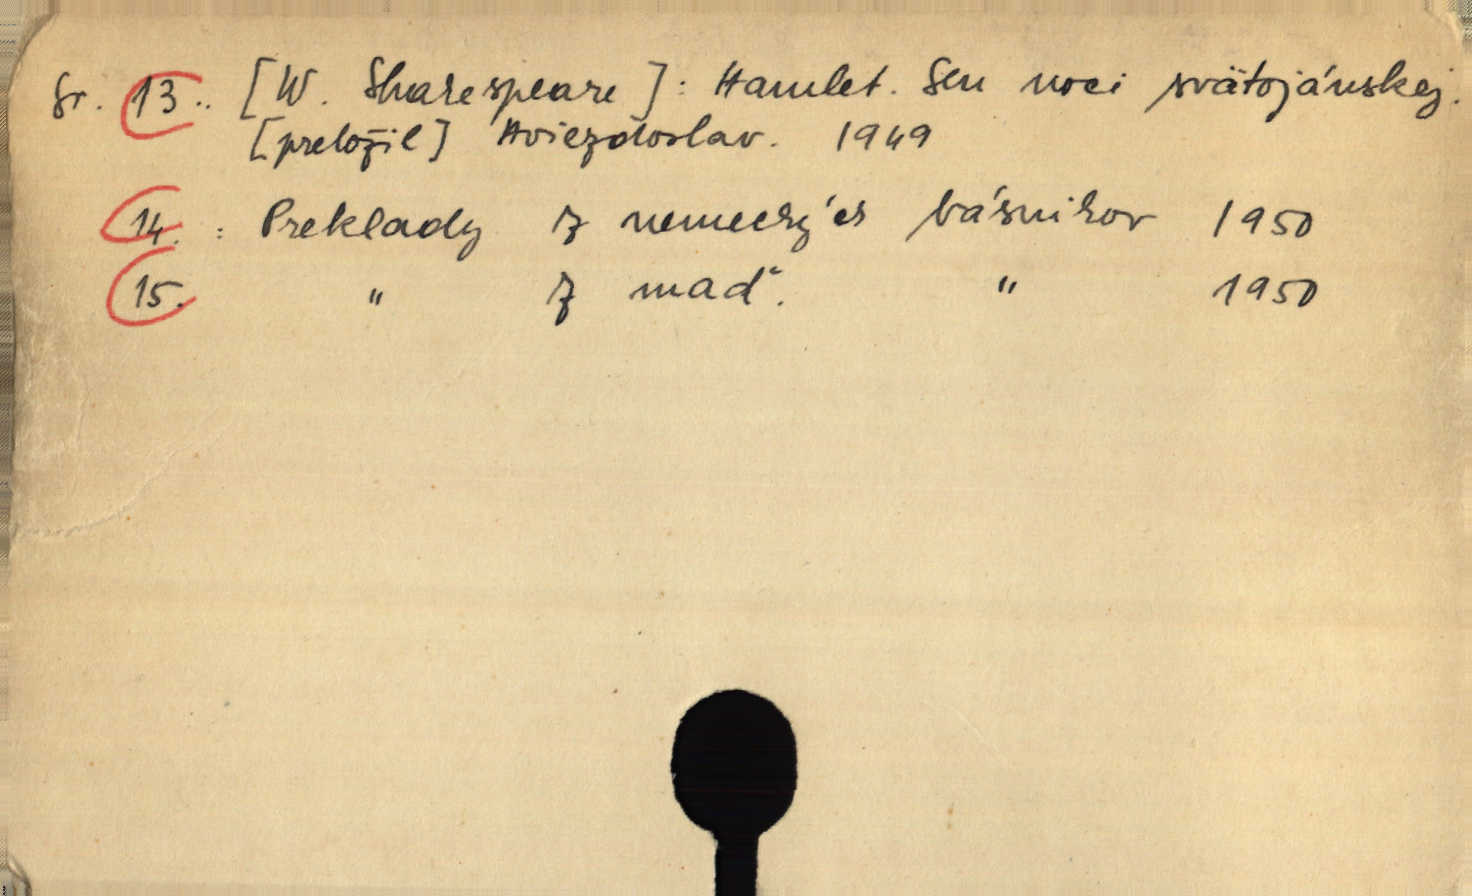 Sr. 13.. [W. Shakespeare]: Hamlet. Sen noci svätojánskej.
[preložil] Hviezdoslav. 1949
14. : Preklady z nemeckých básnikov 1950
15. " z maď. " 1950